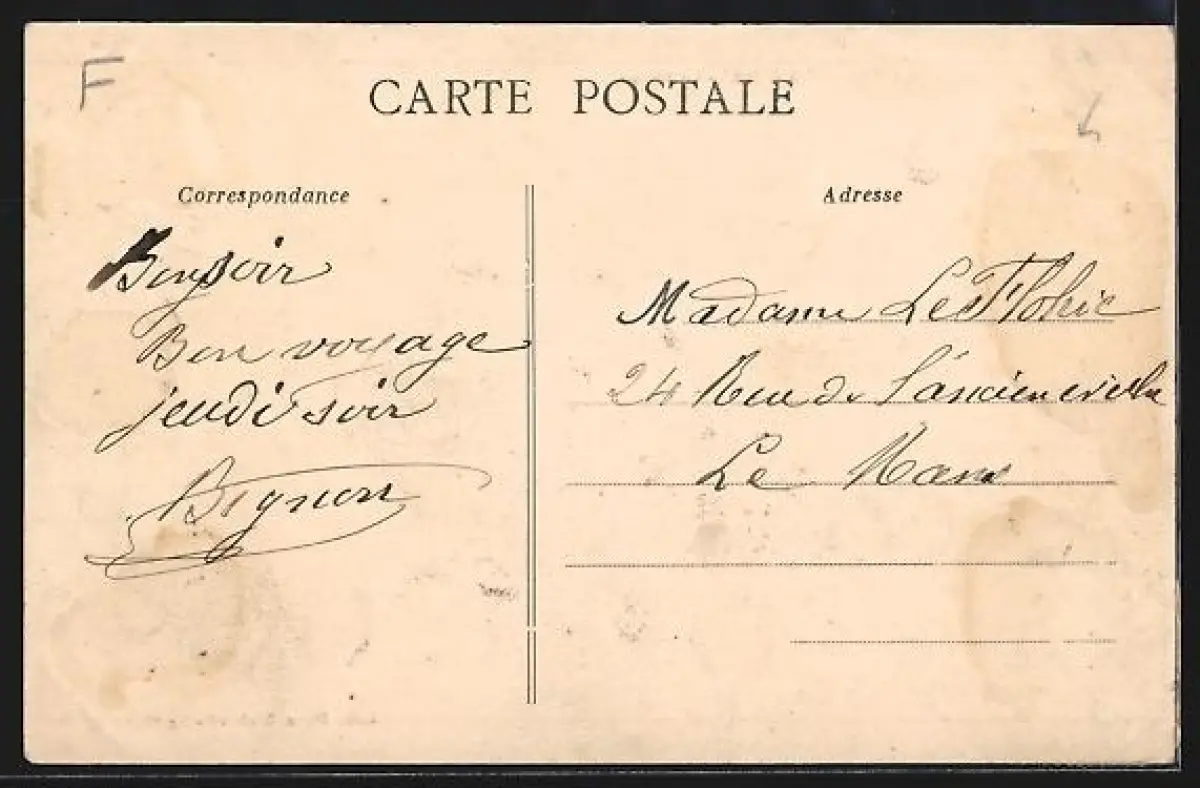 F
CARTE POSTALE
Correspondance
Bonsoir
Bon voyage
jeudi soir
Bignon
Adresse
Madame Le Flohic
24 Rue de l'ancienne
Le Mans